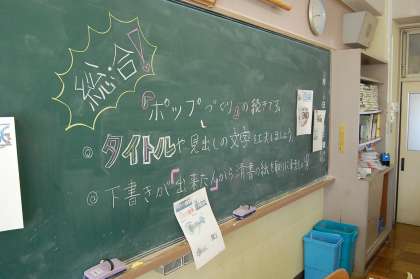 総合!
『ポップづくり』の続きです。
◎タイトルや見出しの文字を工夫しましょう
◎下書きが出来たんなら清書の紙を